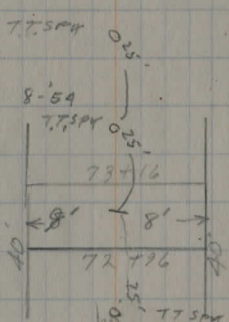 T.T. SPK
0 25'
8-'54
T.T. SPK
0 25'
73+16
8' 8'
72+96
25'
TT SPK